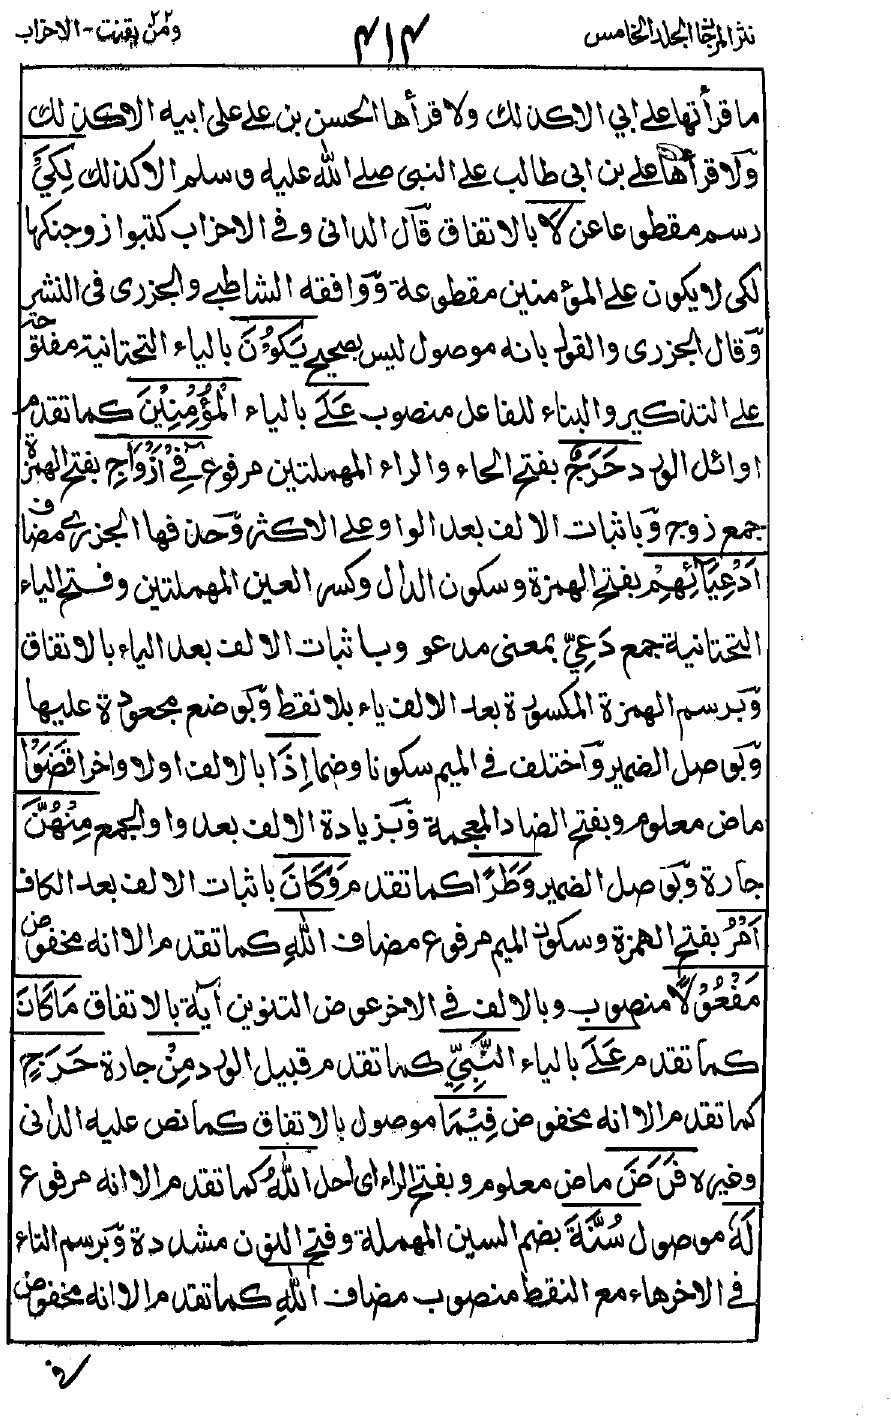 نثر المرجان الجلد الخامس ٤١٤ ومن يقنت ٢٢ - الاحزاب
ما قرأتها على ابي الا كذلك ولا قرأها الحسن بن علي على ابيه الا كذلك
ولا قرأها علي بن ابي طالب على النبي صلى الله عليه وسلم الا كذلك لِكَيْ
رسم مقطوعا عن لَا بالاتفاق قال الداني وفي الاحزاب كتبوا زوجنكها
لكي لا يكون على المؤمنين مقطوعة ووافقه الشاطبي والجزري في النشر
وقال الجزري والقول بانه موصول ليس بصحيح يَكُوْنَ بالياء التحتانية مفتوحة
على التذكير والبناء للفاعل منصوب عَلَى بالياء الْمُؤْمِنِيْنَ كما تقدم
اوائل الورد حَرَجٌ بفتح الحاء والراء المهملتين مرفوع فِيْٓ اَزْوَاجِ بفتح الهمزة
جمع زوج وباثبات الالف بعد الواو على الاكثر وحذفها الجزري مضاف
اَدْعِيَآئِهِمْ بفتح الهمزة وسكون الدال وكسر العين المهملتين وفتح الياء
التحتانية جمع دَعِيّ بمعنى مدعو وباثبات الالف بعد الياء بالاتفاق
وبرسم الهمزة المكسورة بعد الالف ياء بلا نقط وبوضع مجعودة عليها
وبوصل الضمير واختلف في الميم سكونا وضما اِذَا بالالف اولا واخرا قَضَوْا
ماض معلوم وبفتح الضاد المعجمة وبزيادة الالف بعد واو الجمع مِنْهُنَّ
جارة وبوصل الضمير وَطَرًا كما تقدم وَكَانَ باثبات الالف بعد الكاف
اَمْرُ بفتح الهمزة وسكون الميم مرفوع مضاف اللّٰهِ كما تقدم الا انه مخفوض
مَفْعُوْلًا منصوب وبالالف في الاخر عوض التنوين آية بالاتفاق مَا كَانَ
كما تقدم عَلَى بالياء النَّبِيِّ كما تقدم قبيل الورد مِنْ جارة حَرَجٍ
كما تقدم الا انه مخفوض فِيْمَا موصول بالاتفاق كما نص عليه الداني
وغيره فَرَضَ ماض معلوم وبفتح الراء اى احل اللّٰهُ كما تقدم الا انه مرفوع
لَهٗ موصول سُنَّةَ بضم السين المهملة وفتح النون مشددة وبرسم التاء
في الاخر هاء مع النقط منصوب مضاف اللّٰهِ كما تقدم الا انه مخفوض
في